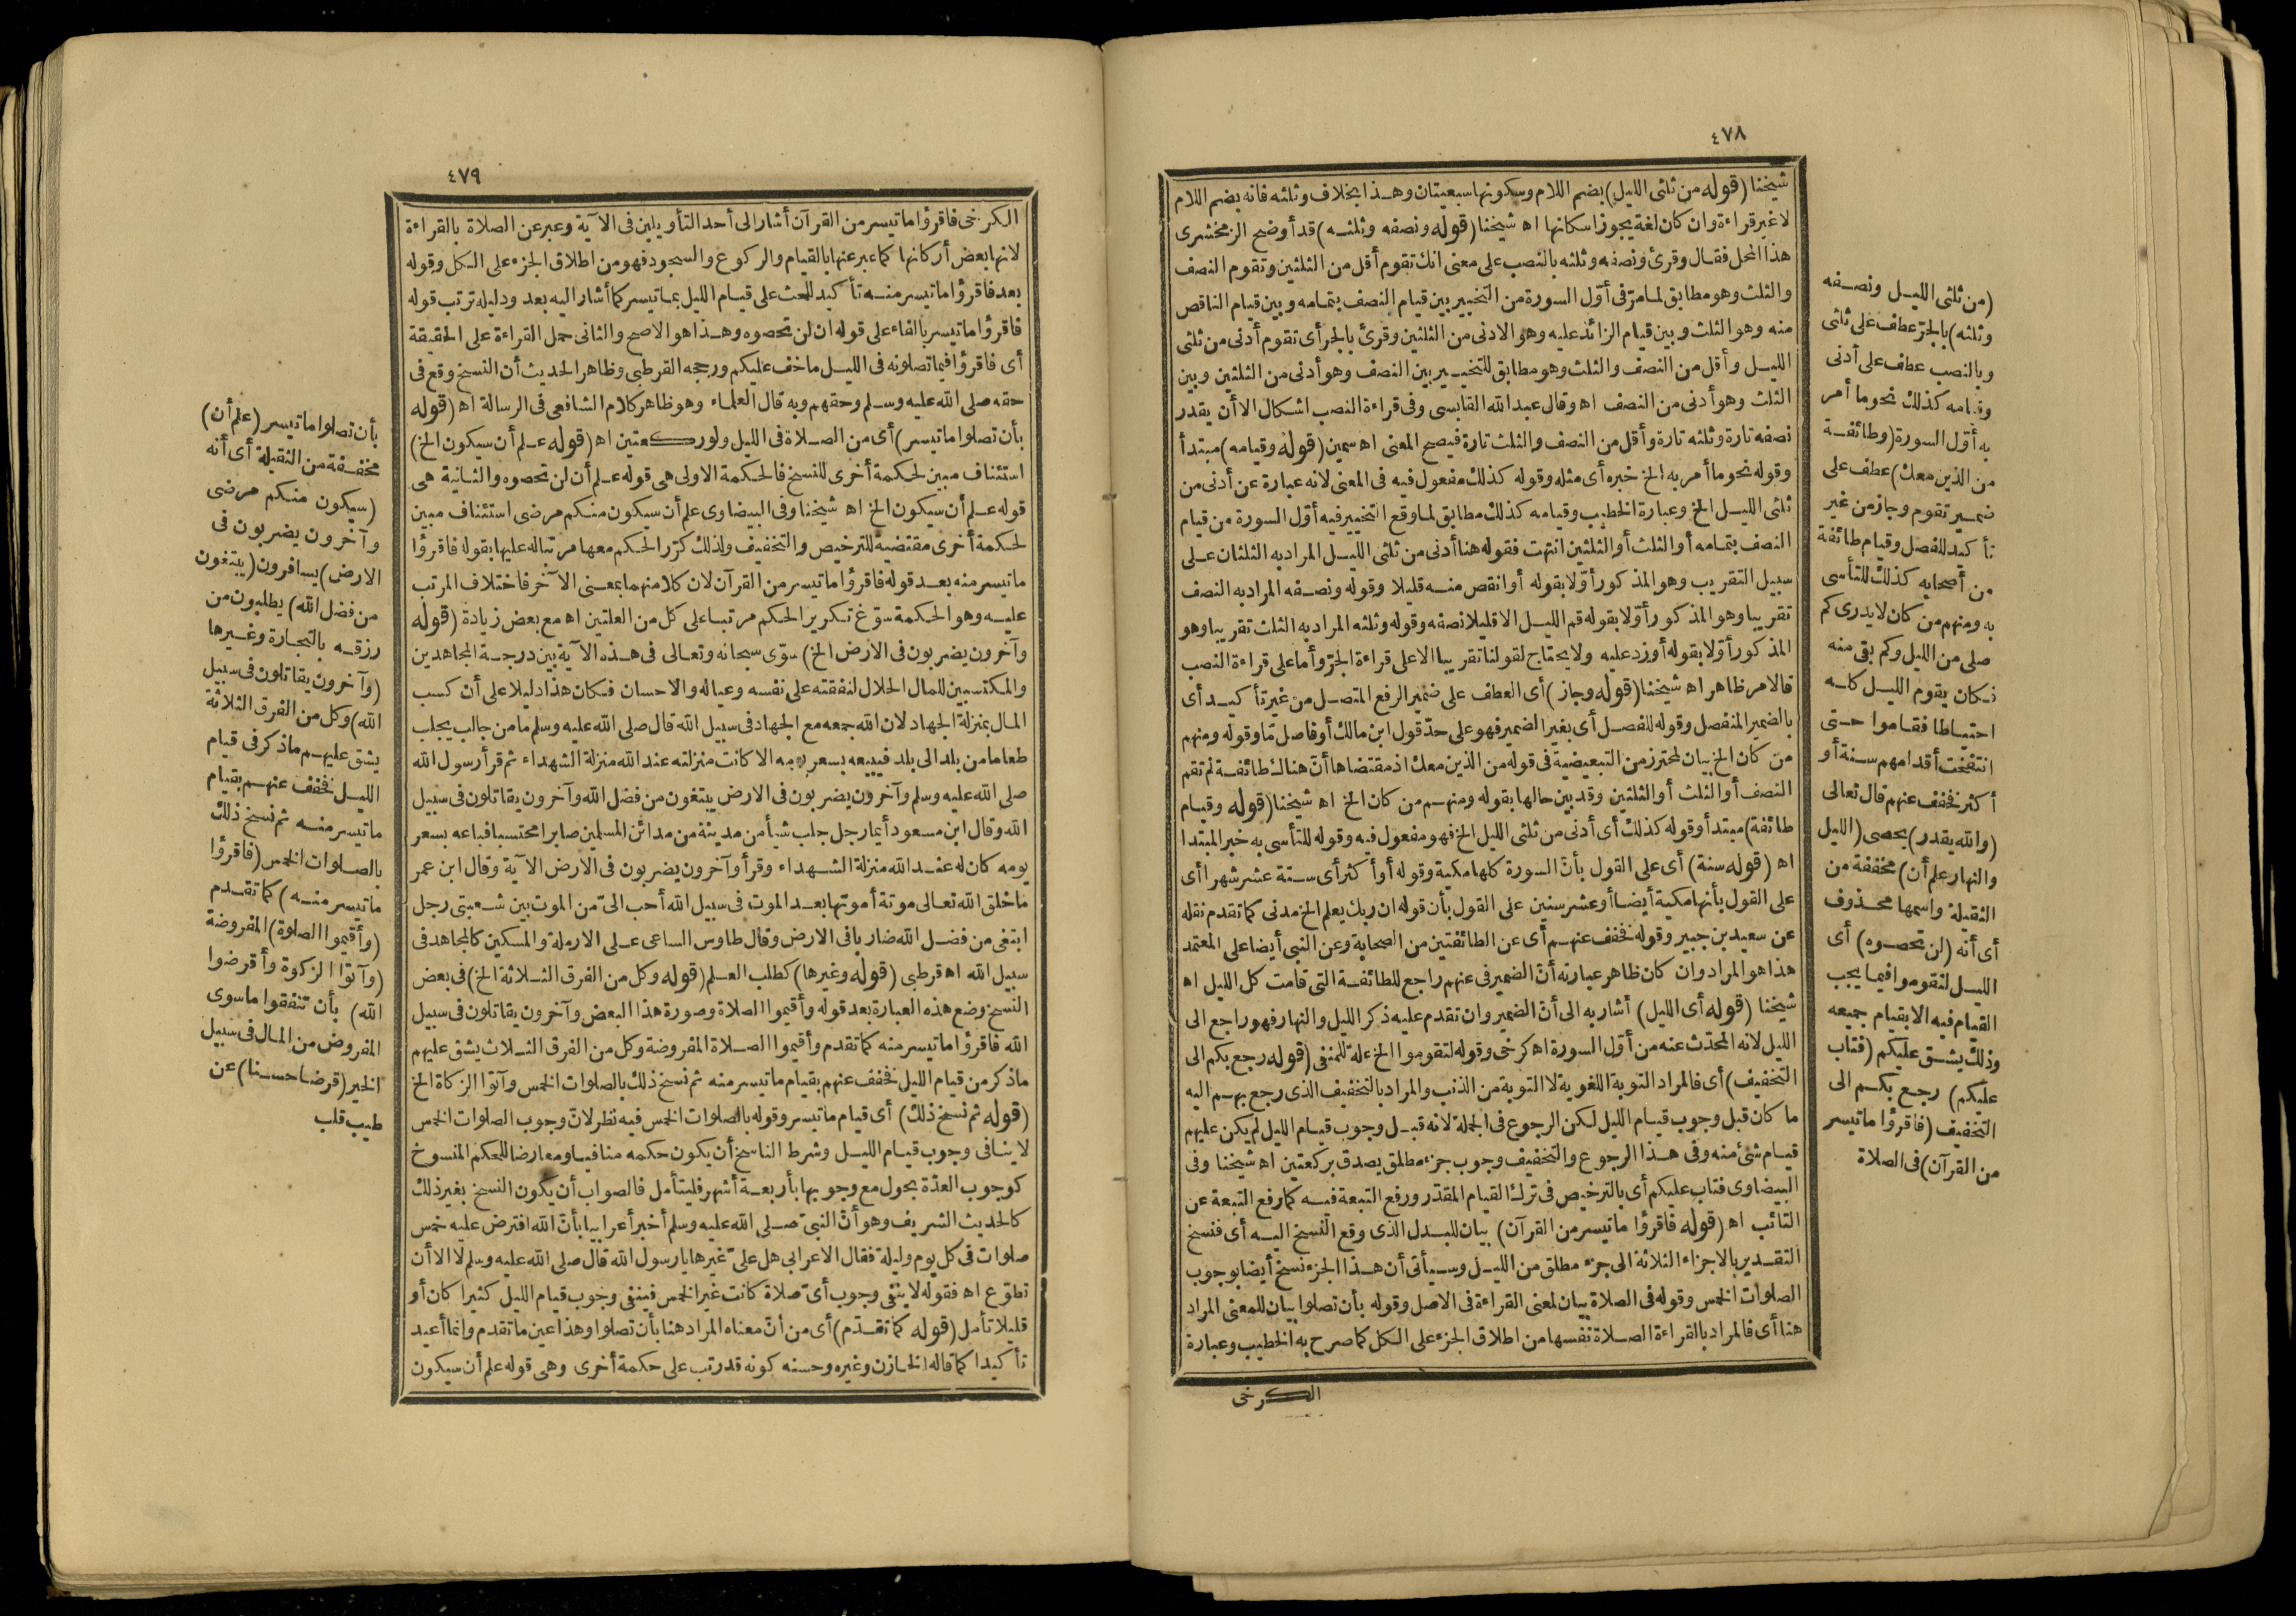 ٤٧٨
شيخنا (قوله من ثلثى الليل) بضم اللام وسكونها سبعيتان وهذا بخلاف وثلثه فانه بضم اللام
لاغير قراءة وان كان لغة يجوز اسكانها اه شيخنا (قوله ونصفه وثلثه) قد أوضح الزمخشرى
هذا المحل فقال وقرئ ونصفه وثلثه بالنصب على معنى انك تقوم أقل من الثلثين وتقوم النصف
والثلث وهو مطابق لما مرّ فى أوّل السورة من التخيير بين قيام النصف بتمامه وبين قيام الناقص
منه وهو الثلث وبين قيام الزائد عليه وهو الادنى من الثلثين وقرئ بالجر أى تقوم أدنى من ثلثى
الليل وأقل من النصف والثلث وهو مطابق للتخيير بين النصف وهو أدنى من الثلثين وبين
الثلث وهو أدنى من النصف اه وقال عبد الله القابسى وفى قراءة النصب اشكال الا أن يقدر
نصفه تارة وثلثه تارة وأقل من النصف والثلث تارة فيصح المعنى اه سمين (قوله وقيامه) مبتدأ
وقوله نحو ما أمر به الخ خبره أى مثله وقوله كذلك مفعول فيه فى المعنى لانه عبارة عن أدنى من
ثلثى الليل الخ وعبارة الخطيب وقيامه كذلك مطابق لما وقع التخيير فيه أوّل السورة من قيام
النصف بتمامه أو الثلث أو الثلثين انتهت فقوله هنا أدنى من ثلثى الليل المراد به الثلثان على
سبيل التقريب وهو المذكور أوّلا بقوله أو انقص منه قليلا وقوله ونصفه المراد به النصف
تقريبا وهو المذكور أوّلا بقوله قم الليل الا قليلا نصفه وقوله وثلثه المراد به الثلث تقريبا وهو
المذكور أوّلا بقوله أو زد عليه ولا يحتاج لقولنا تقريبا الا على قراءة الجرّ وأما على قراءة النصب
فالامر ظاهر اه شيخنا (قوله وجاز) أى العطف على ضمير الرفع المتصل من غير تأكيد أى
بالضمير المنفصل وقوله للفصل أى بغير الضمير فهو على حدّ قول ابن مالك أو فاصل مّا وقوله ومنهم
من كان الخ بيان لمحترز من التبعيضية فى قوله من الذين معك اذ مقتضاها أنّ هناك طائفة لم تقم
النصف أو الثلث أو الثلثين وقد بين حالها بقوله ومنهم من كان الخ اه شيخنا (قوله وقيام
طائفة) مبتدأ وقوله كذلك أى أدنى من ثلثى الليل الخ فهو مفعول فيه وقوله للتأسى به خبر المبتدا
اه (قوله سنة) أى على القول بأنّ السورة كلها مكية وقوله أو أكثر أى ستة عشر شهرا أى
على القول بأنها مكية أيضا أو عشر سنين على القول بأن قوله ان ربك يعلم الخ مدنى كما تقدم نقله
عن سعيد بن جبير وقوله فخفف عنهم أى عن الطائفتين من الصحابة وعن النبى أيضا على المعتمد
هذا هو المراد وان كان ظاهر عبارته أنّ الضمير فى عنهم راجع للطائفة التى قامت كل الليل اه
شيخنا (قوله أى الليل) أشار به الى أنّ الضمير وان تقدم عليه ذكر الليل والنهار فهو راجع الى
الليل لانه المحدّث عنه من أوّل السورة اه كرخى وقوله لتقوموا الخ علة للمنفى (قوله رجع بكم الى
التخفيف) أى فالمراد التوبة اللغوية لا التوبة من الذنب والمراد بالتخفيف الذى رجع بهم اليه
ما كان قبل وجوب قيام الليل لكن الرجوع فى الجملة لانه قبل وجوب قيام الليل لم يكن عليهم
قيام شئ منه وفى هذا الرجوع والتخفيف وجوب جزء مطلق يصدق بركعتين اه شيخنا وفى
البيضاوى فتاب عليكم أى بالترخيص فى ترك القيام المقدّر ورفع التبعة فيه كما رفع التبعة عن
التائب اه (قوله فاقرؤا ما تيسر من القرآن) بيان للبدل الذى وقع النسخ اليه أى فنسخ
التقدير بالاجزاء الثلاثة الى جزء مطلق من الليل وسيأتى أن هذا الجزء نسخ أيضا بوجوب
الصلوات الخمس وقوله فى الصلاة بيان لمعنى القراءة فى الاصل وقوله بأن تصلوا بيان للمعنى المراد
هنا أى فالمراد بالقراءة الصلاة نفسها من اطلاق الجزء على الكل كما صرح به الخطيب وعبارة
الكرخى
(من ثلثى الليل ونصفه
وثلثه) بالجرّ عطف على ثلثى
وبالنصب عطف على أدنى
وقيامه كذلك نحو ما أمر
به أوّل السورة (وطائفة
من الذين معك) عطف على
ضمير تقوم وجاز من غير
تأكيد للفصل وقيام طائفة
من أصحابه كذلك للتأسى
به ومنهم من كان لا يدرى كم
صلى من الليل وكم بقى منه
فكان يقوم الليل كله
احتياطا فقاموا حتى
انتفخت أقدامهم سنة أو
أكثر فخفف عنهم قال تعالى
(والله يقدر) يحصى (الليل
والنهار علم أن) مخففة من
الثقيلة واسمها محذوف
أى أنه (لن تحصوه) أى
الليل لتقوموا فيما يجب
القيام فيه الا بقيام جميعه
وذلك يشق عليكم (فتاب
عليكم) رجع بكم الى
التخفيف (فاقرؤا ما تيسر
من القرآن) فى الصلاة
٤٧٩
الكرخى فاقرؤا ما تيسر من القرآن أشار الى أحد التأويلين فى الآية وعبر عن الصلاة بالقراءة
لانها بعض أركانها كما عبر عنها بالقيام والركوع والسجود فهو من اطلاق الجزء على الكل وقوله
بعد فاقرؤا ما تيسر منه تأكيد للحث على قيام الليل بما تيسر كما أشار اليه بعد ودليله ترتب قوله
فاقرؤا ما تيسر بالفاء على قوله ان لن تحصوه وهذا هو الاصح والثانى حمل القراءة على الحقيقة
أى فاقرؤا فيما تصلونه فى الليل ما خف عليكم ورجحه القرطبى وظاهر الحديث أن النسخ وقع فى
حقه صلى الله عليه وسلم وحقهم وبه قال العلماء وهو ظاهر كلام الشافعى فى الرسالة اه (قوله
بأن تصلوا ما تيسر) أى من الصلاة فى الليل ولو ركعتين اه (قوله علم أن سيكون الخ)
استئناف مبين لحكمة أخرى للنسخ فالحكمة الاولى هى قوله علم أن لن تحصوه والثانية هى
قوله علم أن سيكون الخ اه شيخنا وفى البيضاوى علم أن سيكون منكم مرضى استئناف مبين
لحكمة أخرى مقتضية للترخيص والتخفيف ولذلك كرّر الحكم معها مرتبا له عليها بقوله فاقرؤا
ما تيسر منه بعد قوله فاقرؤا ما تيسر من القرآن لان كلا منهما بمعنى الآخر فاختلاف المرتب
عليه وهو الحكمة سوّغ تكرير الحكم مرتبا على كل من العلتين اه مع بعض زيادة (قوله
وآخرون يضربون فى الارض الخ) سوّى سبحانه وتعالى فى هذه الآية بين درجة المجاهدين
والمكتسبين للمال الحلال لنفقته على نفسه وعياله والاحسان فكان هذا دليلا على أن كسب
المال بمنزلة الجهاد لان الله جمعه مع الجهاد فى سبيل الله قال صلى الله عليه وسلم ما من جالب يجلب
طعاما من بلد الى بلد فيبيعه بسعر يومه الا كانت منزلته عند الله منزلة الشهداء ثم قرأ رسول الله
صلى الله عليه وسلم وآخرون يضربون فى الارض يبتغون من فضل الله وآخرون يقاتلون فى سبيل
الله وقال ابن مسعود أيما رجل جلب شيأ من مدينة من مدائن المسلمين صابرا محتسبا فباعه بسعر
يومه كان له عند الله منزلة الشهداء وقرأ وآخرون يضربون فى الارض الآية وقال ابن عمر
ما خلق الله تعالى موتة أموتها بعد الموت فى سبيل الله أحب الىّ من الموت بين شعبتى رجل
ابتغى من فضل الله ضاربا فى الارض وقال طاوس الساعى على الارملة والمسكين كالمجاهد فى
سبيل الله اه قرطبى (قوله وغيرها) كطلب العلم (قوله وكل من الفرق الثلاثة الخ) فى بعض
النسخ وضع هذه العبارة بعد قوله وأقيموا الصلاة وصورة هذا البعض وآخرون يقاتلون فى سبيل
الله فاقرؤا ما تيسر منه كما تقدم وأقيموا الصلاة المفروضة وكل من الفرق الثلاث يشق عليهم
ماذكر من قيام الليل فخفف عنهم بقيام ما تيسر منه ثم نسخ ذلك بالصلوات الخمس وآتوا الزكاة الخ
(قوله ثم نسخ ذلك) أى قيام ما تيسر وقوله بالصلوات الخمس فيه نظر لانّ وجوب الصلوات الخمس
لا ينافى وجوب قيام الليل وشرط الناسخ أن يكون حكمه منافيا ومعارضا للحكم المنسوخ
كوجوب العدّة بحول مع وجوبها بأربعة أشهر فليتأمل فالصواب أن يكون النسخ بغير ذلك
كالحديث الشريف وهو أنّ النبىّ صلى الله عليه وسلم أخبر أعرابيا بأنّ الله افترض عليه خمس
صلوات فى كل يوم وليلة فقال الاعرابى هل علىّ غيرها يا رسول الله قال صلى الله عليه وسلم لا الا أن
تطوّع اه فقوله لا ينفى وجوب أىّ صلاة كانت غير الخمس فينفى وجوب قيام الليل كثيرا كان أو
قليلا تأمل (قوله كما تقدّم) أى من أنّ معناه المراد هنا بأن تصلوا وهذا عين ما تقدم وانما أعيد
تأكيدا كما قاله الخازن وغيره وحسنه كونه قد رتب على حكمة أخرى وهى قوله علم أن سيكون
بأن تصلوا ما تيسر (علم أن)
مخففة من الثقيلة أى أنه
(سيكون منكم مرضى
وآخرون يضربون فى
الارض) يسافرون (يبتغون
من فضل الله) يطلبون من
رزقه بالتجارة وغيرها
(وآخرون يقاتلون فى سبيل
الله) وكل من الفرق الثلاثة
يشق عليهم ما ذكر فى قيام
الليل فخفف عنهم بقيام
ما تيسر منه ثم نسخ ذلك
بالصلوات الخمس (فاقرؤا
ما تيسر منه) كما تقدم
(وأقيموا الصلوة) المفروضة
(وآتوا الزكوة وأقرضوا
الله) بأن تنفقوا ما سوى
المفروض من المال فى سبيل
الخير (قرضا حسنا) عن
طيب قلب